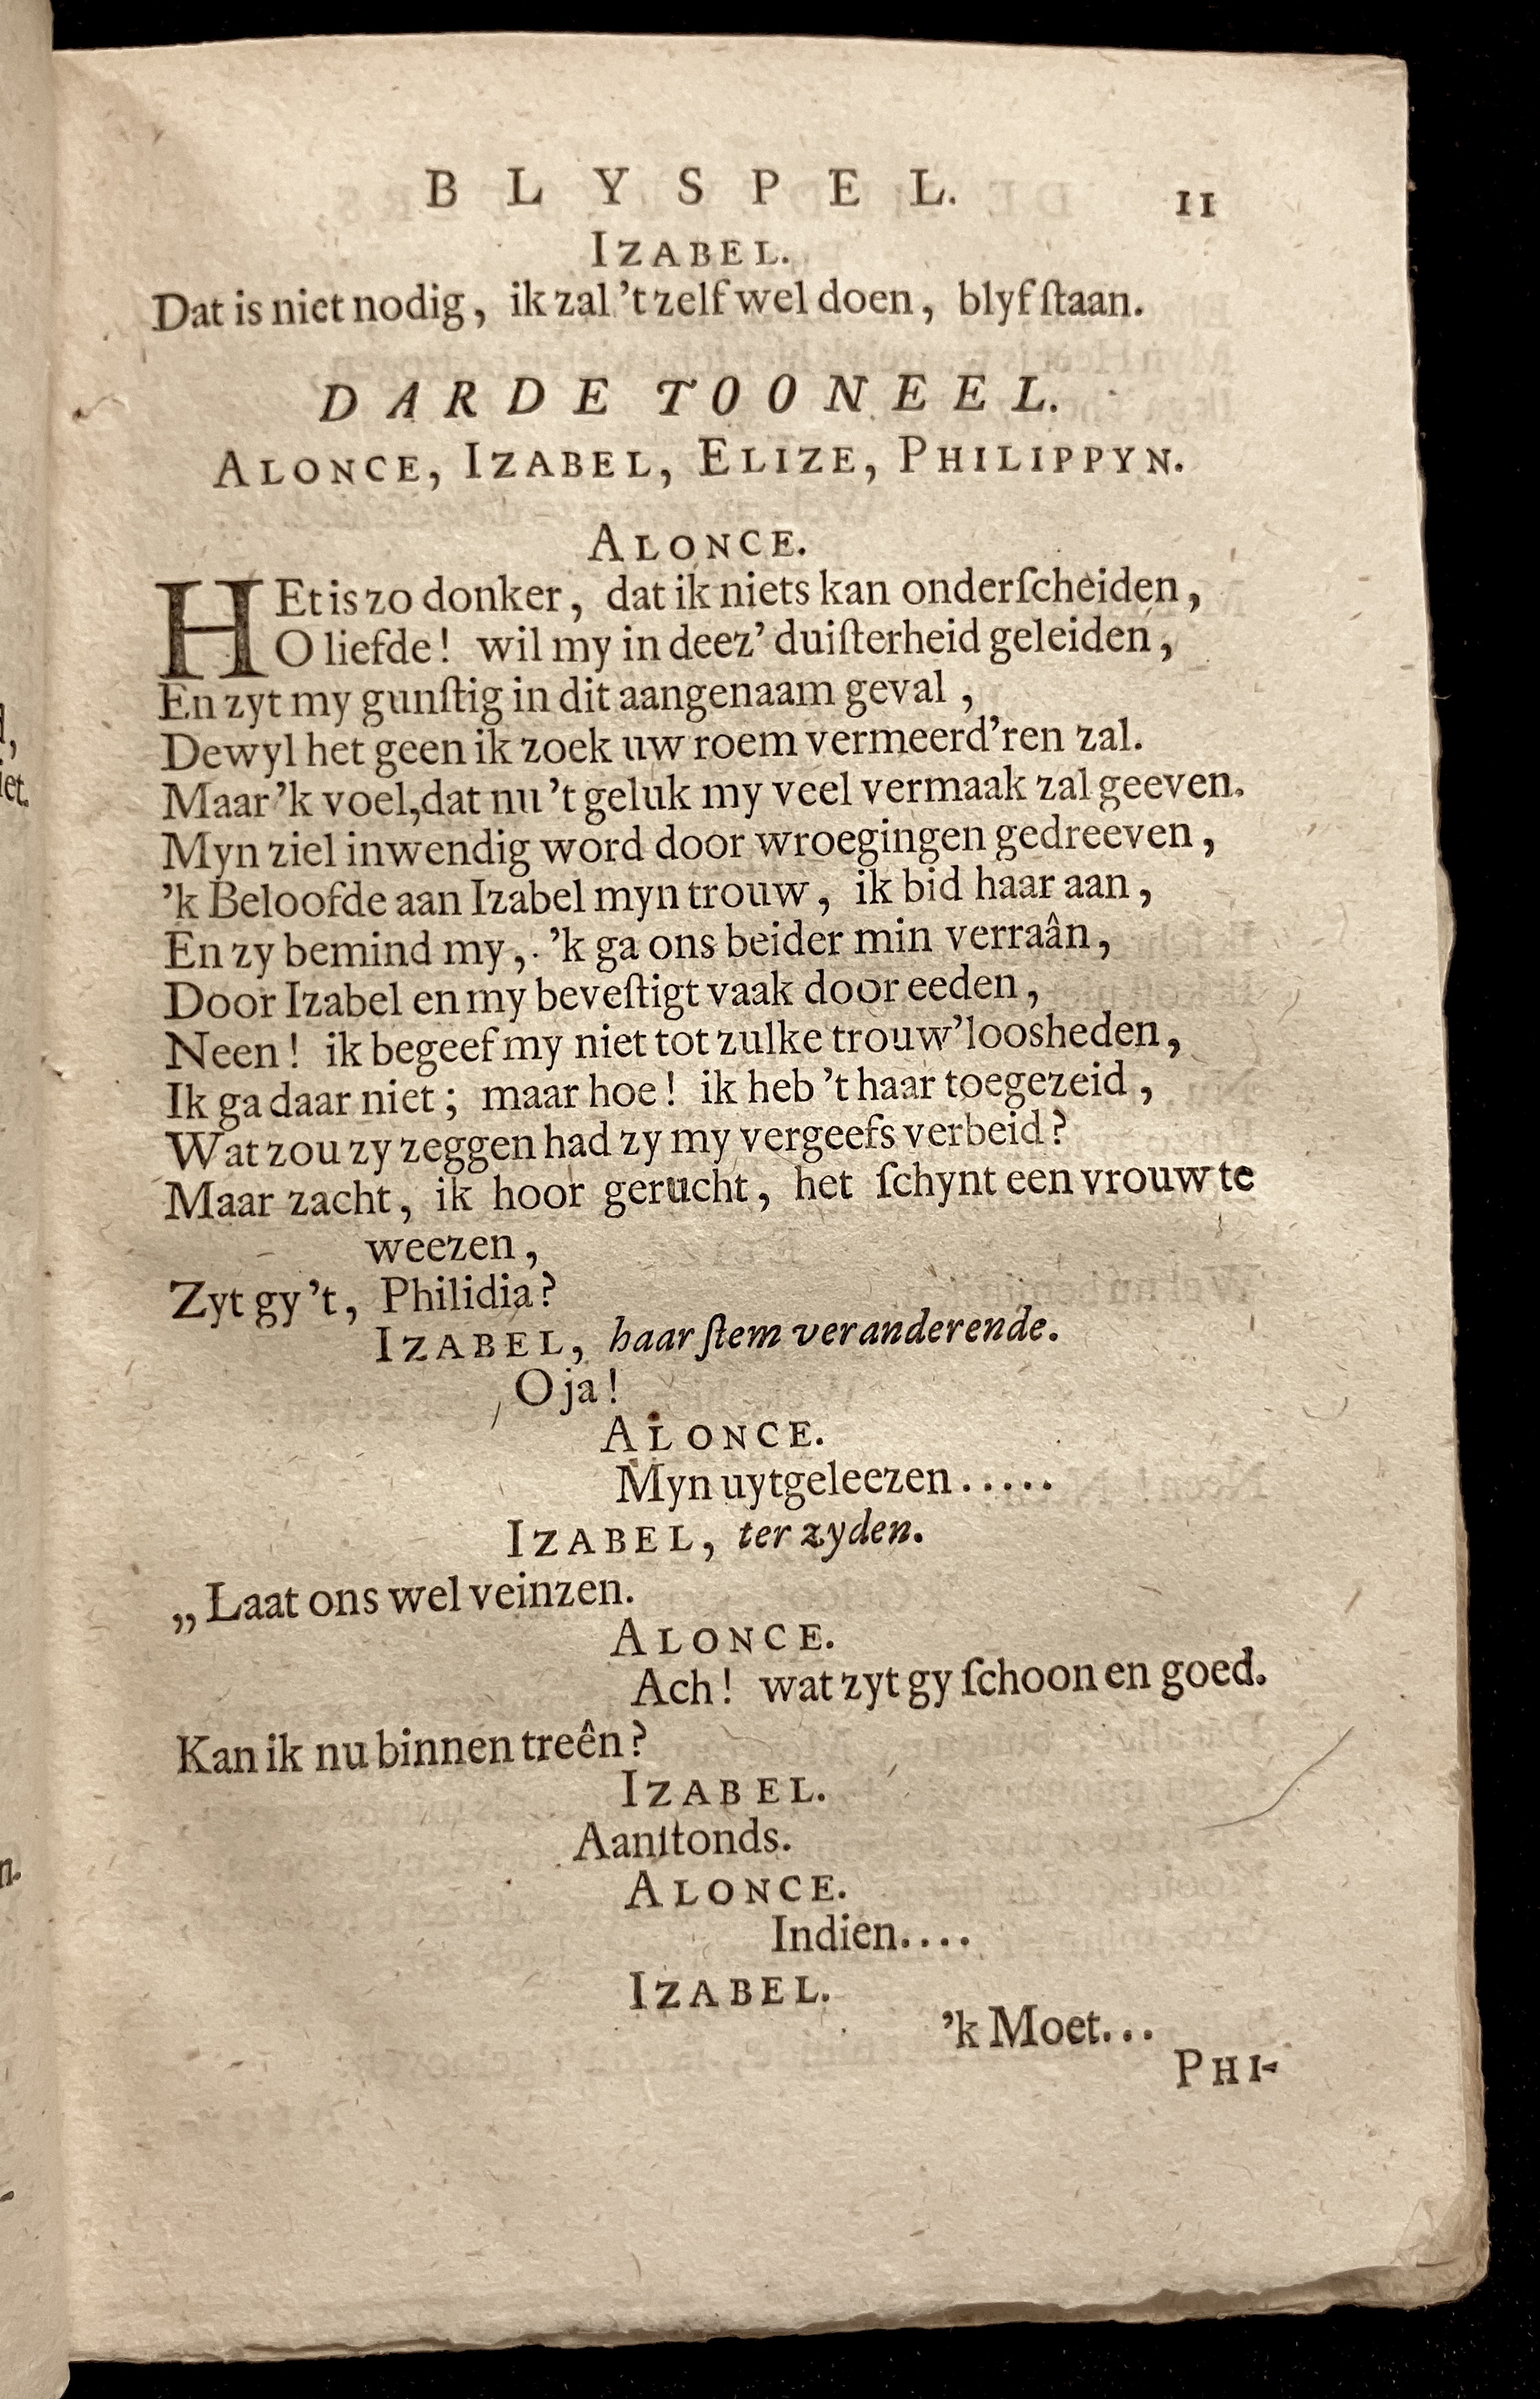 BLYSPEL. 11
IZABEL.
Dat is niet nodig, ik zal 't zelf wel doen, blyf ſtaan.
DARDE TOONEEL.
ALONCE, IZABEL, ELIZE, PHILIPPYN.
ALONCE.
HEt is zo donker, dat ik niets kan onderſcheiden,
O liefde! wil my in deez' duiſterheid geleiden,
En zyt my gunſtig in dit aangenaam geval,
Dewyl het geen ik zoek uw roem vermeerd'ren zal.
Maar 'k voel, dat nu 't geluk my veel vermaak zal geeven.
Myn ziel inwendig word door wroegingen gedreeven,
'k Beloofde aan Izabel myn trouw, ik bid haar aan,
En zy bemind my, 'k ga ons beider min verraân,
Door Izabel en my beveſtigt vaak door eeden,
Neen! ik begeef my niet tot zulke trouw'loosheden,
Ik ga daar niet; maar hoe! ik heb 't haar toegezeid,
Wat zou zy zeggen had zy my vergeefs verbeid?
Maar zacht, ik hoor gerucht, het ſchynt een vrouw te
weezen,
Zyt gy 't, Philidia?
IZABEL, haar ſtem veranderende.
O ja!
ALONCE.
Myn uytgeleezen.....
IZABEL, ter zyden.
„Laat ons wel veinzen.
ALONCE.
Ach! wat zyt gy ſchoon en goed.
Kan ik nu binnen treên?
IZABEL.
Aanſtonds.
ALONCE.
Indien....
IZABEL.
'k Moet...
PHI-